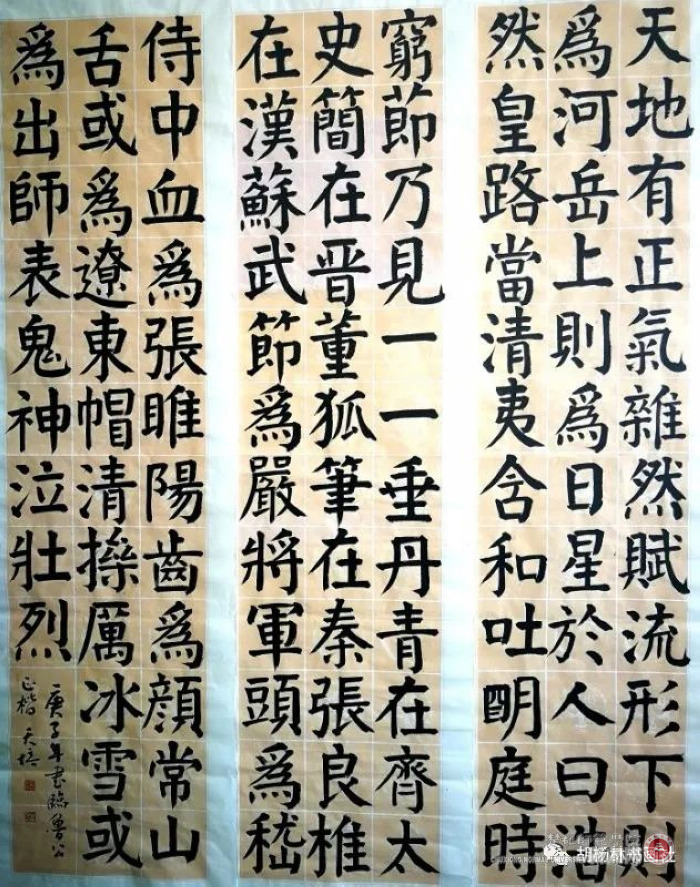 天地有正氣雜然賦流形下則
爲河岳上則爲日星於人曰浩
然皇路當清夷含和吐明庭時
窮節乃見一一垂丹青在齊太
史簡在晉董狐筆在秦張良椎
在漢蘇武節爲嚴將軍頭爲嵇
侍中血爲張睢陽齒爲顏常山
舌或爲遼東帽清操厲冰雪或
爲出師表鬼神泣壯烈
庚子年書臨魯公
正楷
CHUXIONG NORMAL UNIVERSITY
胡杨林书画社